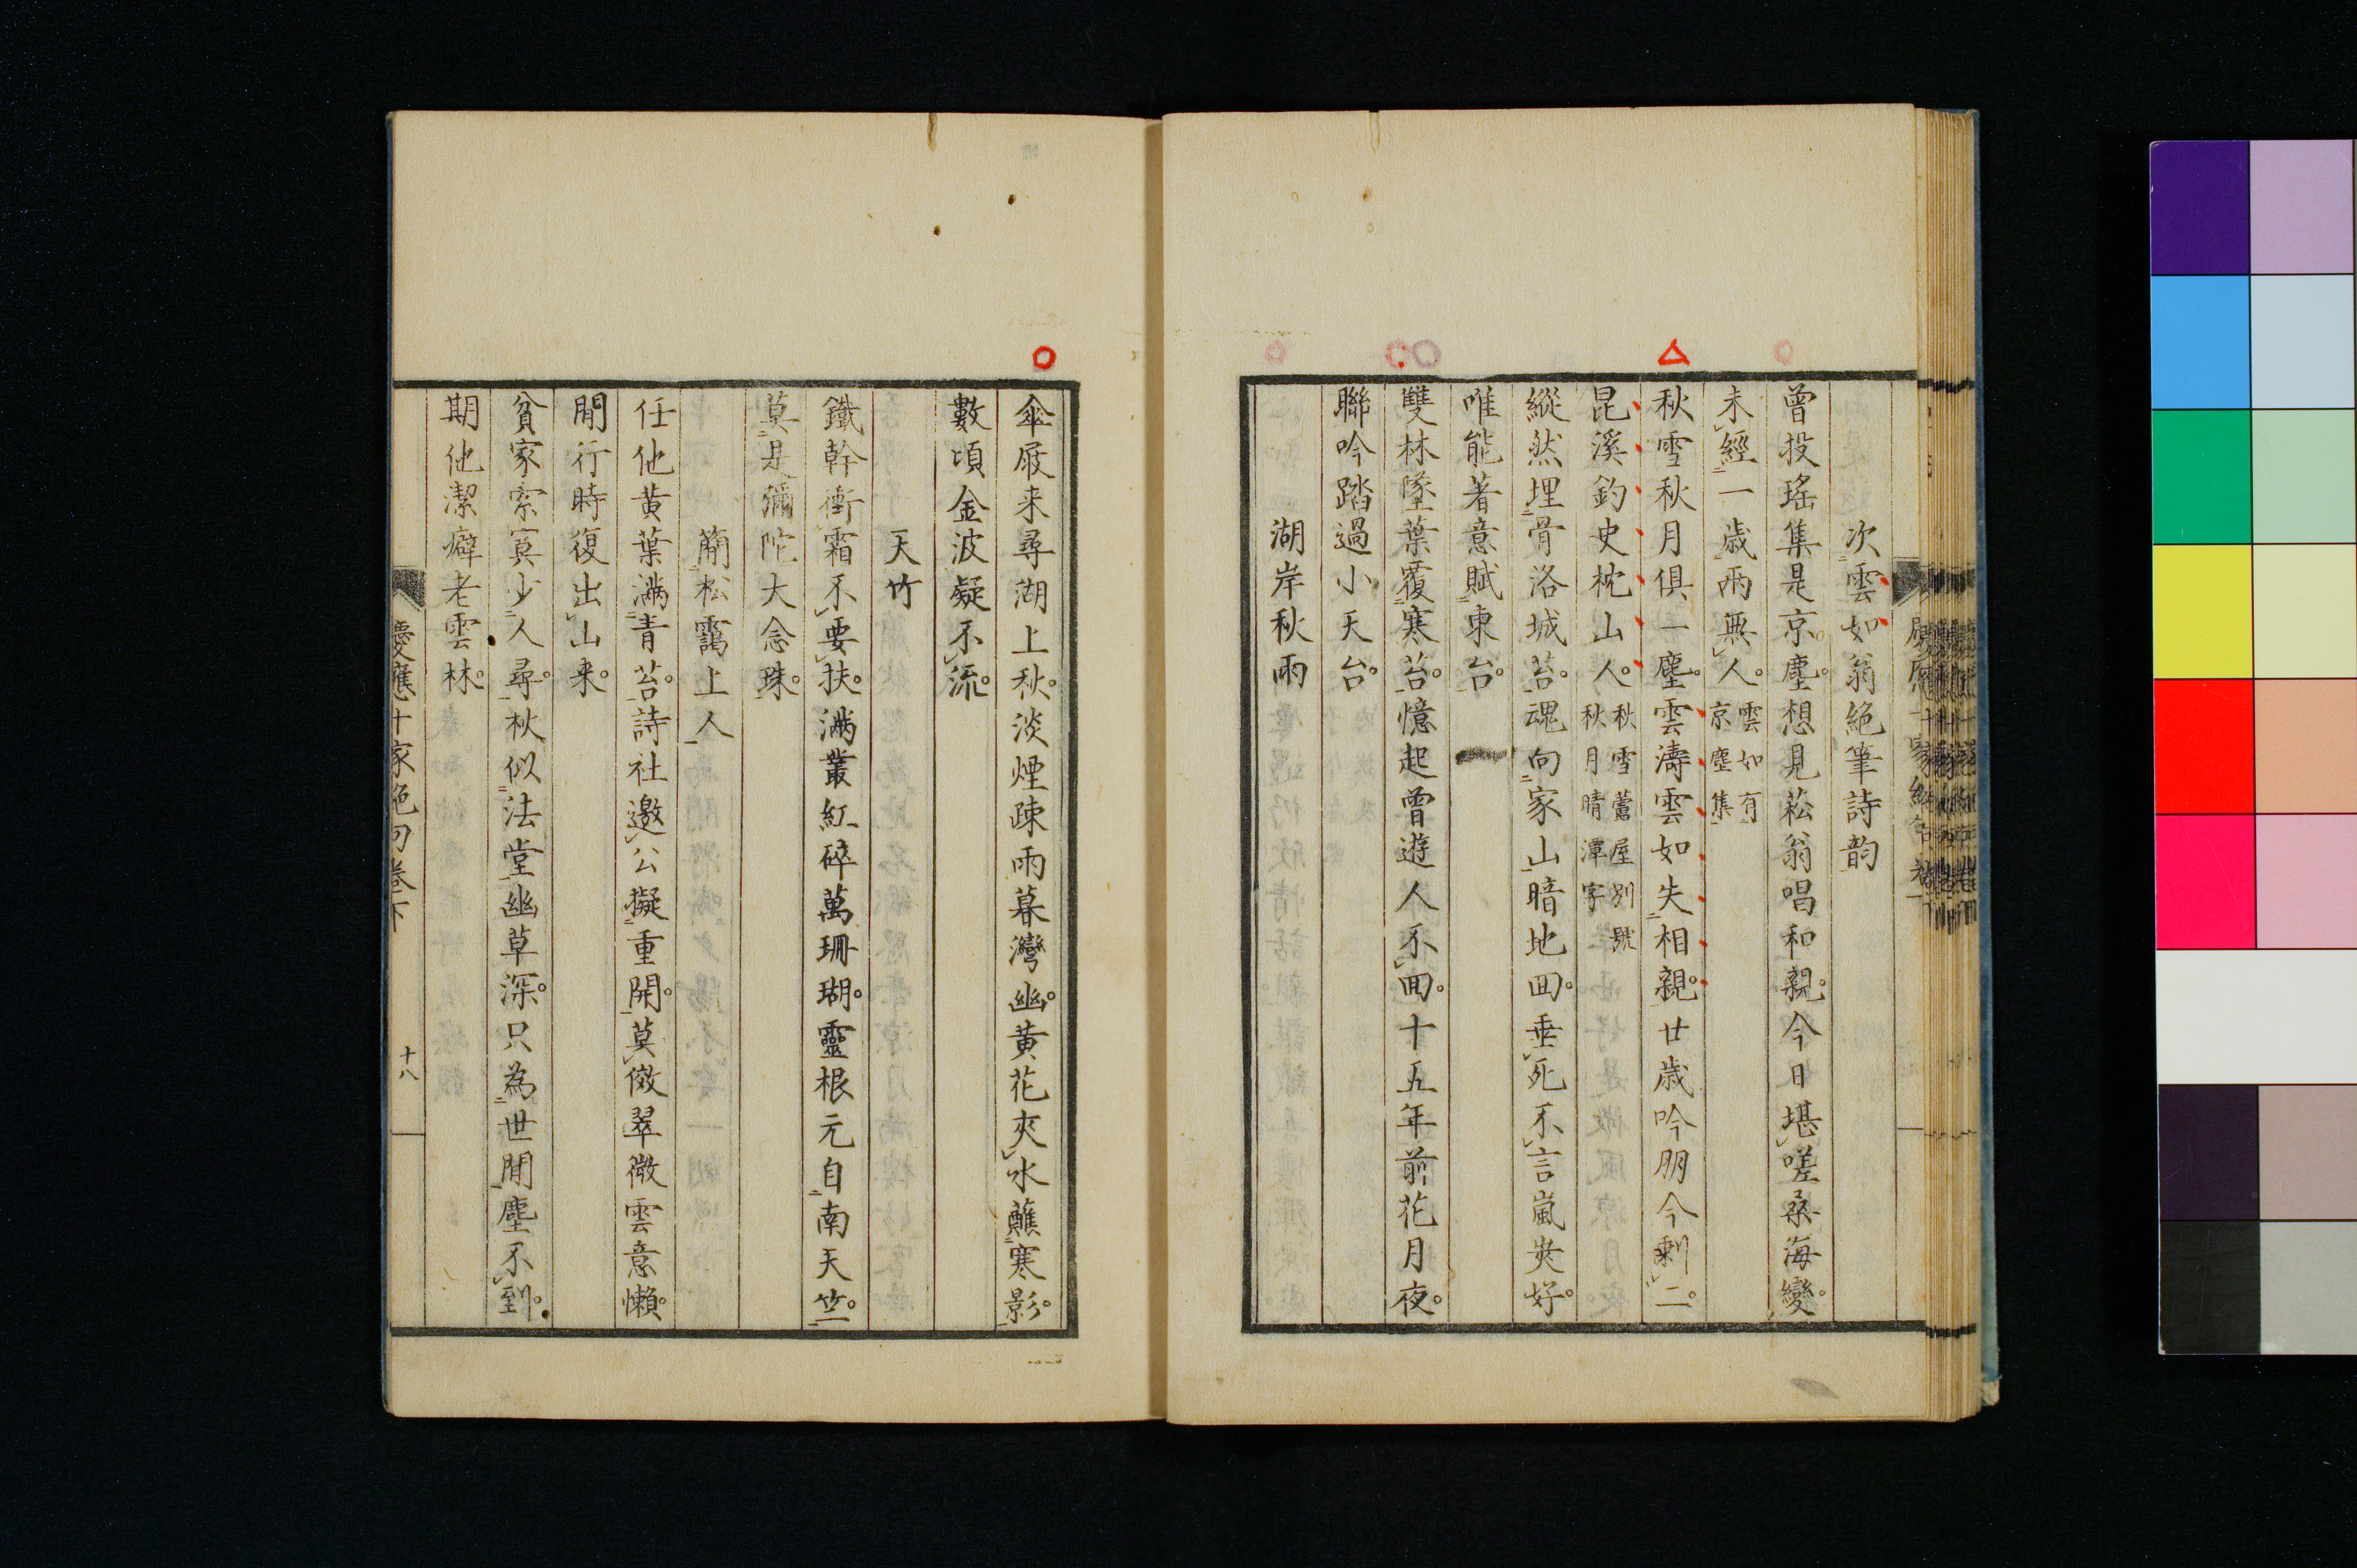 次雲如翁絶筆詩韵
曾投瑤集是京塵。想見菘翁唱和親。今日堪嗟桑海變。
未經一歳兩無人。雲如有京塵集
秋雪秋月倶一塵。雲濤雲如失相親。廿歳吟朋今剩二。
昆溪釣史枕山人。秋雪蘆屋別號秋月晴潭字
縱然埋骨洛城苔。魂向家山暗地回。垂死不言嵐峡好。
唯能著意賦東台。
雙林墜葉覆寒苔。憶起曾遊人不回。十五年前花月夜。
聯吟踏過小天台。
湖岸秋雨
傘屐来尋湖上秋。淡煙疎雨暮灣幽。黄花夾水蘸寒影。
數頃金波凝不流。
天竹
鐵幹衝霜不要扶。満叢紅碎萬珊瑚。靈根元自南天竺。
莫是彌陀大念珠。
簡松靄上人
任他黄葉満青苔。詩社邀公擬重開。莫傚翠微雲意懶。
閒行時復出山来。
貧家索寞少人尋。秋似法堂幽草深。只為世間塵不到。
期他潔癖老雲林。
慶應十家絶句卷下
十八